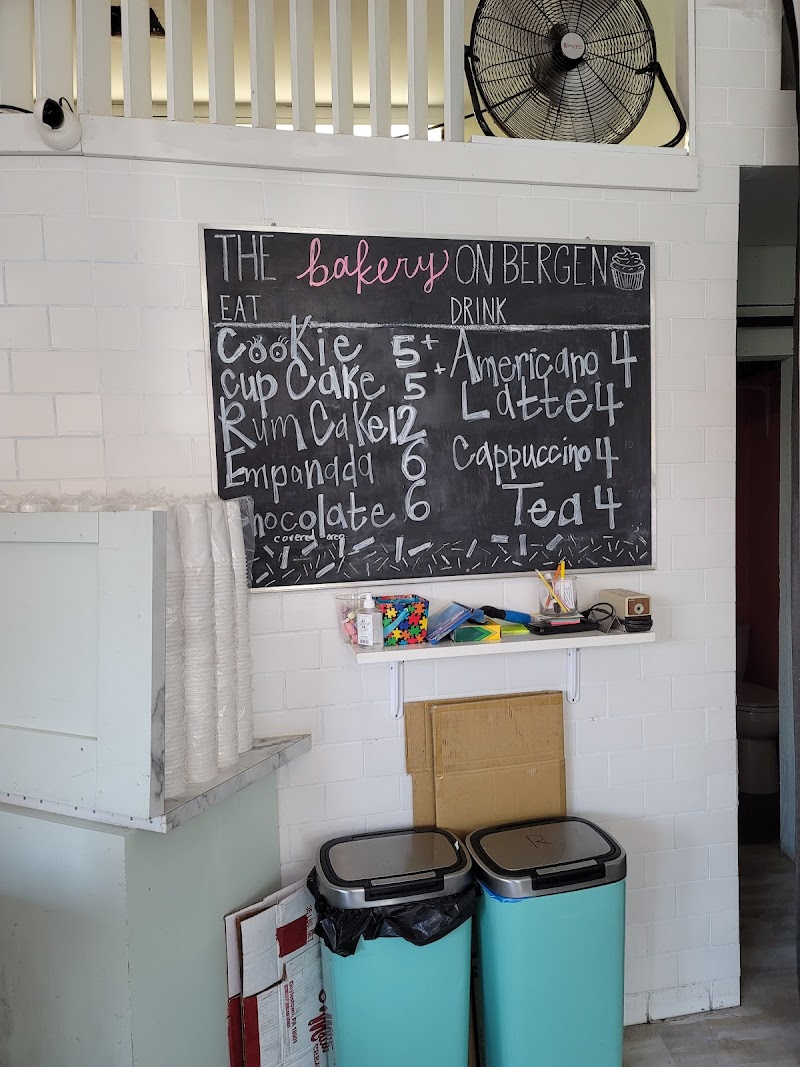 THE bakery ON BERGEN
EAT
DRINK
Cookie 5+
Cup Cake 5+
Rum Cake 12
Empanada 6
Chocolate 6
covered oreo
Americano 4
Latte 4
Cappuccino 4
Tea 4
R